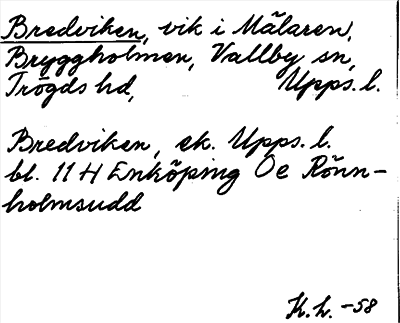 Bredviken, vik i Mälaren,
Bryggholmen, Vallby sn,
Trögds hd, Upps. l.
Bredviken, ek. Upps. l.
bl. 11 H Enköping Oe Rönn-
holmsudd
K. L. -58